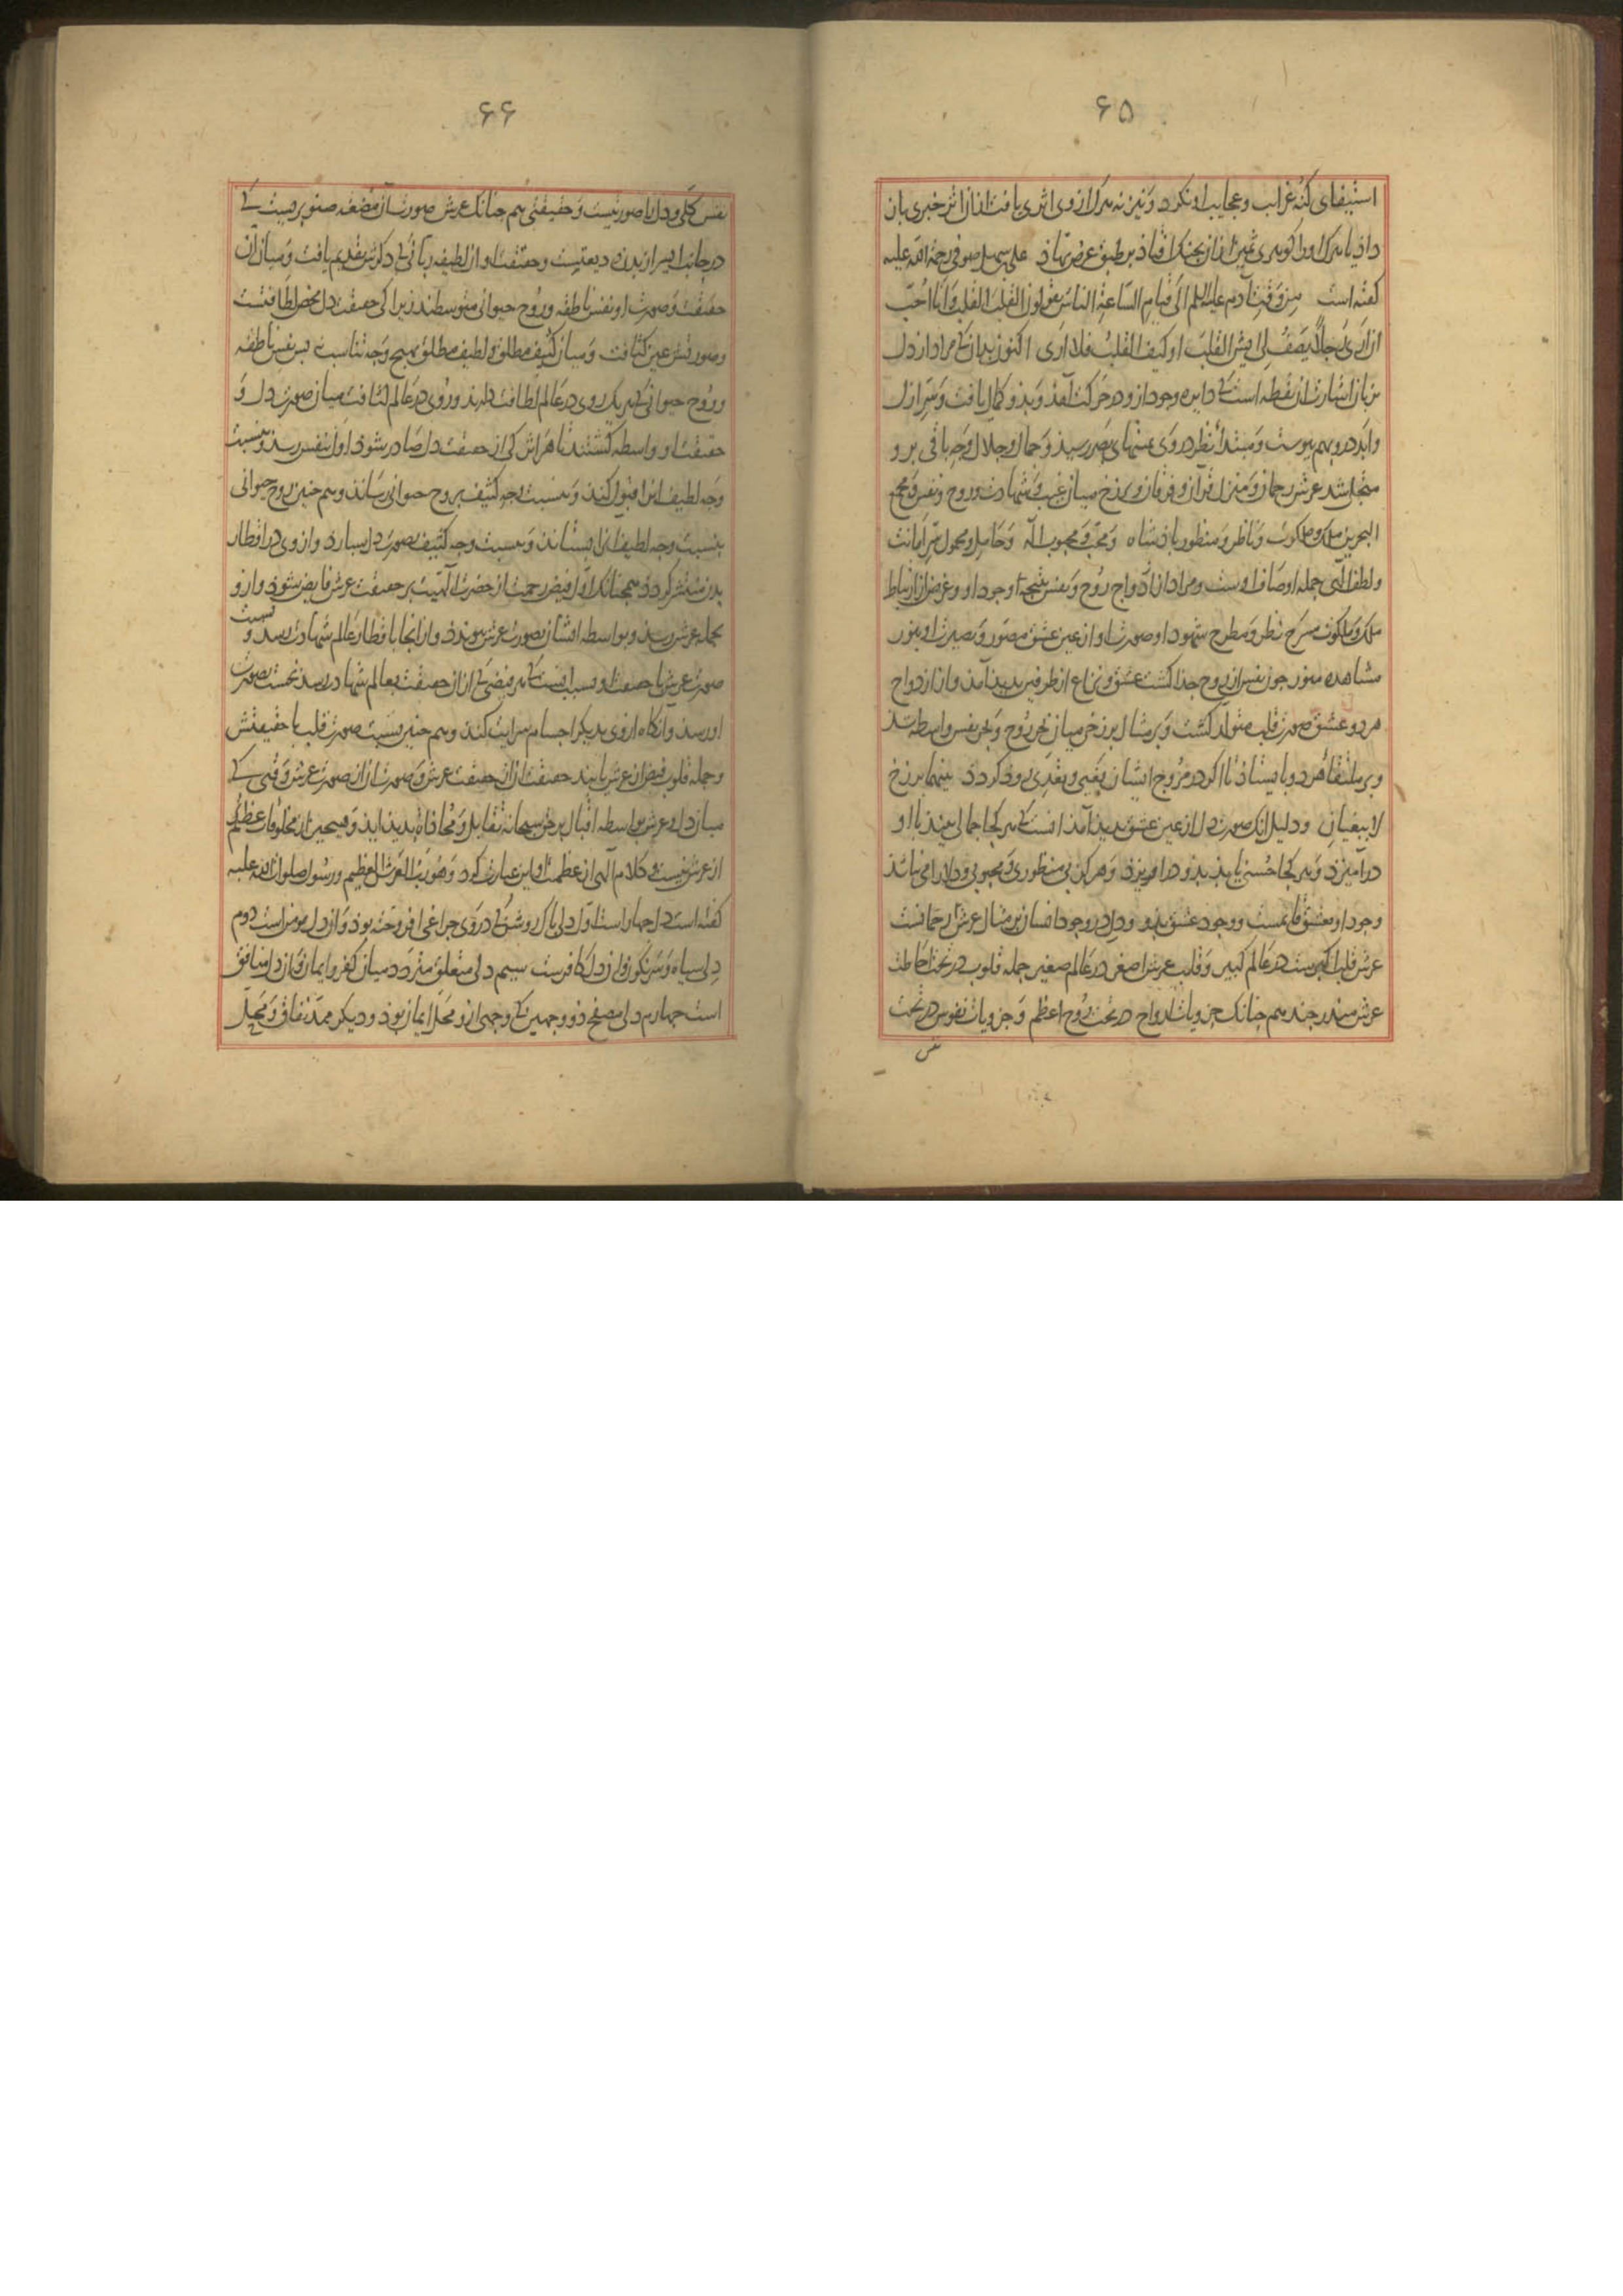 ۶۵
استیفای کنه غرایب و عجایب او نکرد و نیز نه هرک از وی اثری یافت از ان اثر خبری باز
داد یا هرک او را کوهری ثمین از ان بجنک افتاد بر طبق عرض نهاد علی سهل صوفی رحمة الله علیه
کفته است من وقت آدم علیه السلم الی قیام الساعة الناس یقولون القلب القلب و انا احب
ان اری رجلا یصف لی ایش القلب او کیف القلب فلا اری اکنون بدان کی مراد از دل
بزبان اشارت ان نقطه است کی دایره وجود از و در حرکت آمد و بذو کمال یافت و سر ازل
و ابد درو بهم پیوست و مبتدأ نظر در وی بمنتهای بصر رسید و جمال و جلال وجه باقی بر و
متجلی شد عرش رحمان و منزل قرآن و فرقان و برزخ میان غیب و شهادت و روح و نفس و مجمع
البحرین ملک و ملکوت و ناظر و منظور پادشاه و محب و محبوب اله و حامل و محمول سر امانت
و لطف الهی جمله اوصاف اوست و مراد از ازدواج روح و نفس نتیجه وجود او و غرض از ارتباط
ملک و ملکوت مسرح نظر و مطرح شهود او صورت او از عین عشق مصور و بصیرت او بنور
مشاهده منور چون نفس از روح جدا کشت عشق و نزاع از طرفین بدید آمد و از ازدواج
هر دو عشق صورت قلب متولد کشت و بر مثال برزخی میان بحر روح و بحر نفس واسطه شد
و بر ملتقا هر دو بایستاد تا اکر در مروج ایشان بغیی و تعدی روذ کردد بینهما برزخ
لا یبغیان و دلیل انک صورت دل از عین عشق بدید آمد انست کی هر کجا جمالی بیند با او
درآمیزد و هر کجا حسنی یابد بذو درآویزد و هرکز بی منظوری و محبوبی و دلارامی نباشد
وجود او بعشق قایمست و وجود عشق بدو و دل در وجود انسان بر مثال عرش رحمانست
عرش قلب اکبرست در عالم کبیر و قلب عرش اصغر در عالم صغیر جمله قلوب در تحت احاطت
عرش مندرجند هم چنانک جزویات ارواح در تحت روح اعظم و جزویات نفوس در تحت
نفس
۶۶
نفس کلی و دل را صورتیست و حقیقتی هم چنانک عرش صورت آن مضغه صنوبریست کی
در جانب ایسر از بدن ودیعتست و حقیقت او ان لطیفه ربانی کی ذکرش تقدیم یافت و میان آن
حقیقت و صورت او نفس ناطقه و روح حیوانی متوسطند زیرا کی حقیقت دل محض لطافتست
و صورتش عین کثافت و میان کثیف مطلق و لطیف مطلق بهیچ وجه تناسب پس نفس ناطقه
و روح حیوانی کی هر یک روی در عالم لطافت دارند و روی در عالم کثافت میان صورت دل و
حقیقت او واسطه کشتند تا هر اثر کی از حقیقت دل صادر شود اول بنفس رسد و بنسبت
وجه لطیف انرا قبول کند و بنسبت وجه کثیف بروح حیوانی رساند و هم چنین روح حیوانی
بنسبت وجه لطیف انرا بستاند و بنسبت وجه کثیف بصورت دل سپارد و از وی در اقطار
بدن منتشر کردد همچنانک اول فیض رحمت از حضرت الهیت بر حقیقت عرش فایض شود و از و
بحمله عرش رسد و بواسطه ایشان بصورت عرش پیوندد و از انجا باقطار عالم شهادت رسد و نسبت
صورت عرش با حقیقت او بسبب اینست کی هر فیضی کی از ان حقیقت بعالم شهادت رسد نخست بصورت
او رسد و انکاه از وی بدیکر اجسام سرایت کند و هم چنین نسبت صورت قلب با حقیقتش
و جمله قلوب فیض از عرش یابند حقیقت از ان حقیقت عرش و صورت از ان صورت عرش وقتی کی
میان دل و عرش بواسطه اقبال بر حق سبحانه تقابل و محاذاة بدید اید و هیچ چیز از مخلوقات عظیم
از عرش نیست و کلام الهی از عظمت او این عبارت کرد و هو رب العرش العظیم و رسول صلوات الله علیه
کفته است دل چهار است اول دلی پاک و روشن کی در وی چراغی افروخته بود و آن دل مومن است دوم
دلی سیاه و سرنکون و ان دل کافرست سیم دلی متعلق متردد میان کفر و ایمان و آن دل منافق
است چهارم دلی مصفح ذو وجهین کی وجهی ازو محل ایمان بود و دیکر ممد نفاق و محل